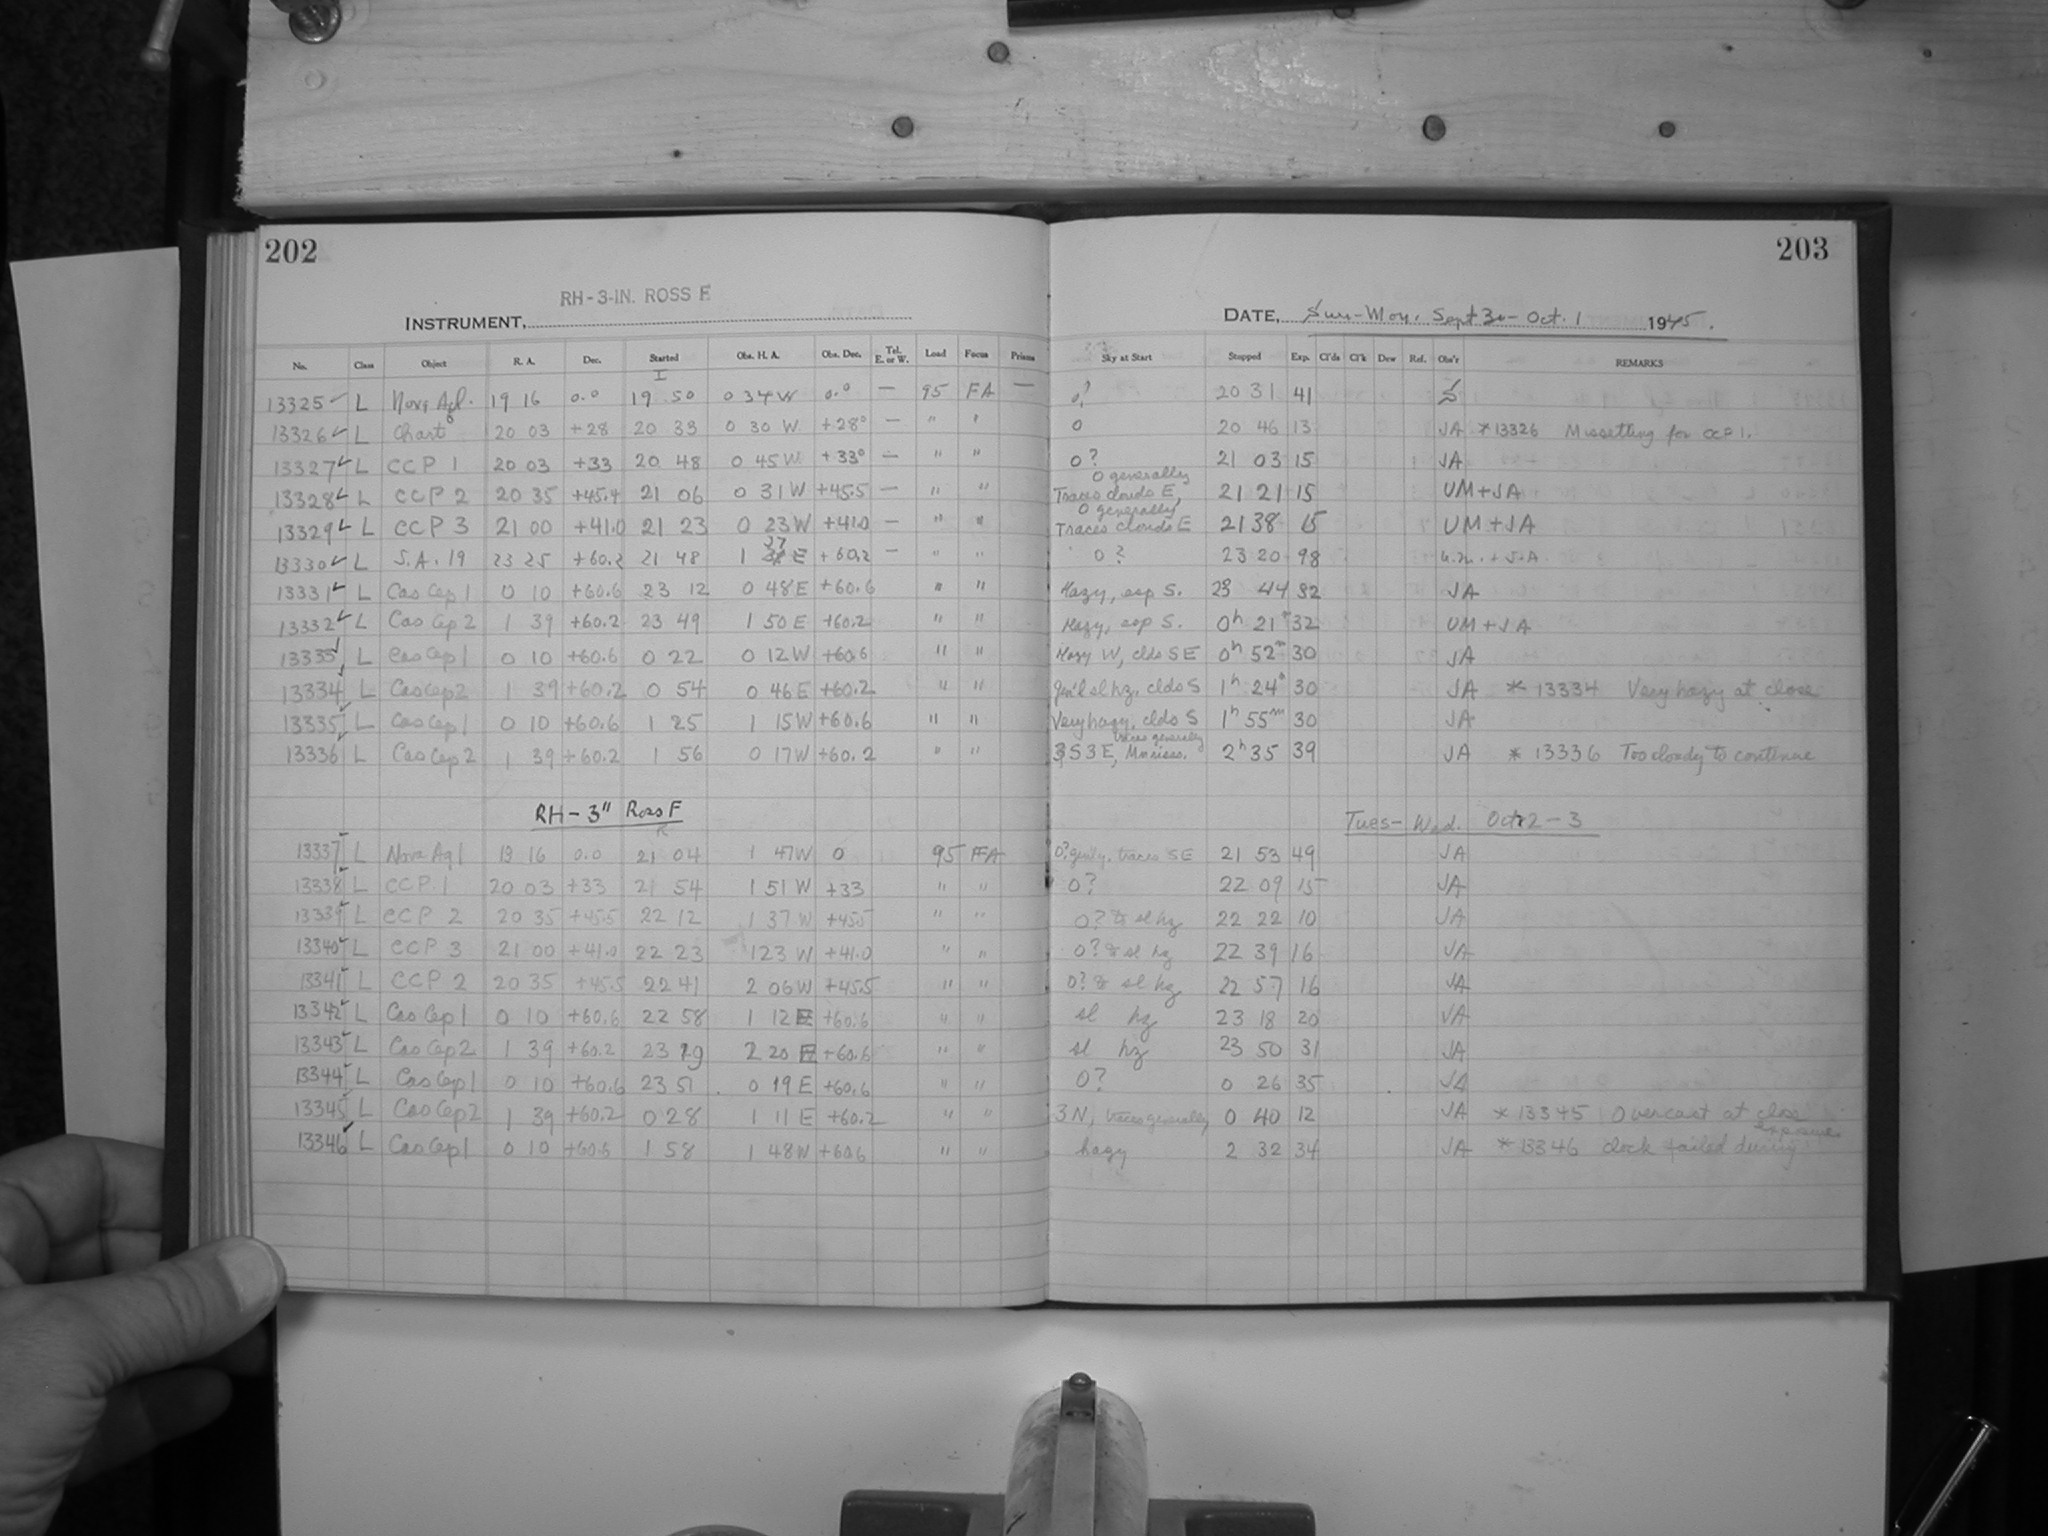 202
203
RH-3-IN. ROSS F
INSTRUMENT, DATE, Sun-Mon. Sept 30-Oct. 1 1945.
No. Class Object R. A. Dec. Started Obs. H. A. Obs. Dec. Tel. E. or W. Load Focus Prisms Sky at Start Stopped Exp. Cl'ds Cl'k Dew Ref. Obs'r REMARKS
13325 L Nova Aql. 19 16 0.0 19 50 0 34 W 0.0 — 95 FA — 0? 20 31 41
13326 L Chart 20 03 +28 20 33 0 30 W +28° — " " 0 20 46 13 JA *13326 Missetting for CCP 1.
13327 L CCP 1 20 03 +33 20 48 0 45 W +33° — " " 0? 21 03 15 JA
13328 L CCP 2 20 35 +45.4 21 06 0 31 W +45.5 — " " 0 generally Traces clouds E, 21 21 15 UM+JA
13329 L CCP 3 21 00 +41.0 21 23 0 23 W +41.0 — " " 0 generally Traces clouds E 21 38 15 UM+JA
13330 L S.A. 19 23 25 +60.2 21 48 1 37 E +60.2 — " " 0? 23 20 98 u.m. + J.A.
13331 L Cas Cep 1 0 10 +60.6 23 12 0 48 E +60.6 " " Hazy, esp S. 23 44 32 JA
13332 L Cas Cep 2 1 39 +60.2 23 49 1 50 E +60.2 " " Hazy, esp S. 0h 21m 32 UM+JA
13333 L Cas Cep 1 0 10 +60.6 0 22 0 12 W +60.6 " " Hazy W, clds SE 0h 52m 30 JA
13334 L Cas Cep 2 1 39 +60.2 0 54 0 46 E +60.2 " " Gen'l sl hz, clds S 1h 24m 30 JA * 13334 Very hazy at close
13335 L Cas Cep 1 0 10 +60.6 1 25 1 15 W +60.6 " " Very hazy, clds S 1h 55m 30 JA
13336 L Cas Cep 2 1 39 +60.2 1 56 0 17 W +60.2 " " 3S3E, traces generally 2h 35 39 JA * 13336 Too cloudy to continue
RH-3" Ross F Tues-Wed. Oct 2-3
13337 L Nova Aql 19 16 0.0 21 04 1 47 W 0 95 FFA 0? gen'ly, traces SE 21 53 49 JA
13338 L CCP 1 20 03 +33 21 54 1 51 W +33 " " 0? 22 09 15 JA
13339 L CCP 2 20 35 +45.5 22 12 1 37 W +45.5 " " 0? & sl hz 22 22 10 JA
13340 L CCP 3 21 00 +41.0 22 23 1 23 W +41.0 " " 0? & sl hz 22 39 16 JA
13341 L CCP 2 20 35 +45.5 22 41 2 06 W +45.5 " " 0? & sl hz 22 57 16 JA
13342 L Cas Cep 1 0 10 +60.6 22 58 1 12 E +60.6 " " sl hz 23 18 20 JA
13343 L Cas Cep 2 1 39 +60.2 23 19 2 20 E +60.6 " " sl hz 23 50 31 JA
13344 L Cas Cep 1 0 10 +60.6 23 51 0 19 E +60.6 " " 0? 0 26 35 JA
13345 L Cas Cep 2 1 39 +60.2 0 28 1 11 E +60.2 " " 3N, traces generally 0 40 12 JA * 13345 Overcast at close
13346 L Cas Cep 1 0 10 +60.6 1 58 1 48 W +60.6 " " hazy 2 32 34 JA * 13346 clock failed during exposure